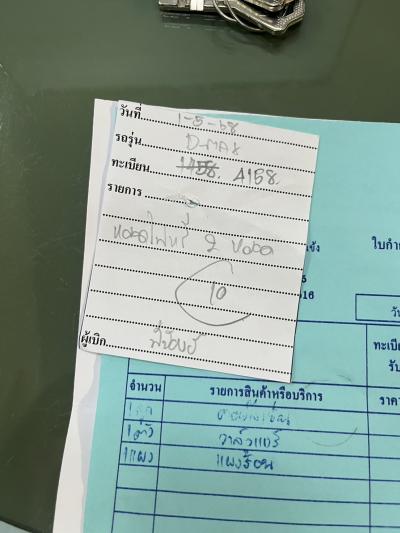 วันที่ 1-5-68
รถรุ่น D-MAX
ทะเบียน 1458. 4158.
รายการ
หลอดไฟหรี่ 2 หลอด
10
ผู้เบิก
ใบกำ
16
วั
ทะเบี
รับ
จำนวน รายการสินค้าหรือบริการ ราคา
1ตัว วาล์วแอร์
1แผง แผงร้อน